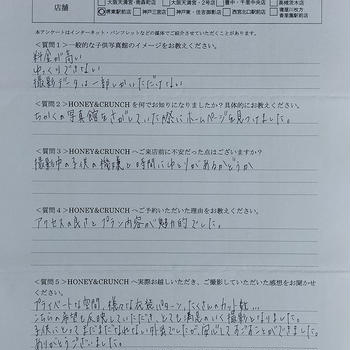 店舗
大阪天満宮・南森町店
大阪天満宮・2号店
豊中・千里中央店
高槻茨木店
堺東駅前店
神戸三宮店
神戸東・住吉御影店
西宮北口駅前店
本アンケートはインターネット・パンフレットなどの媒体でご紹介させていただく場合がございます。
＜質問1＞一般的な子供写真館のイメージをお教えください。
料金が高い
ゆっくりできない
撮影データは一部しかいただけない
＜質問2＞HONEY&CRUNCHを何でお知りになりましたか？具体的にお教えください。
ちかくの写真館をさがしていた際にホームページを見つけました。
＜質問3＞HONEY&CRUNCHへご来店前に不安だった点はございますか？
撮影中の子供の機嫌と時間にゆとりがあるかどうか
＜質問4＞HONEY&CRUNCHへご予約いただいた理由をお教えください。
アクセスの良さとプラン内容が魅力的でした。
＜質問5＞HONEY&CRUNCHへ実際お越しいただき、ご撮影していただいた感想をお聞かせください。
プライベートな空間、様々な衣装パターン、たくさんのカット数...
こちらの希望も反映していただき、とても満足いく撮影となりました。
子供にとってまだまだなれない外出でしたが、安心してすごすことができました。
ありがとうございました。